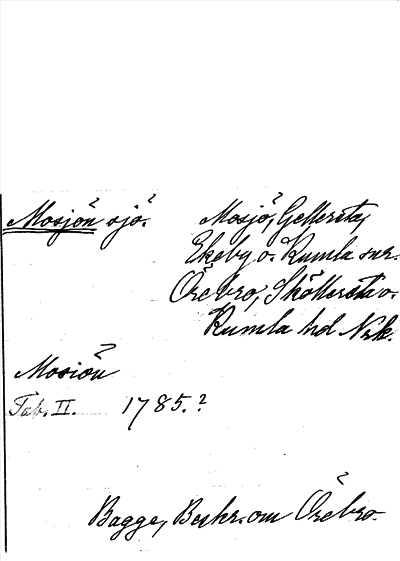 Mosjön sjö. Mosjö, Gellersta,
Ekeby o. Kumla snr.
Örebro, Sköllersta o.
Kumla hd Nrk.
Mosiön
Tab. II. 1785.?
Bagge, Beskr. om Örebro.